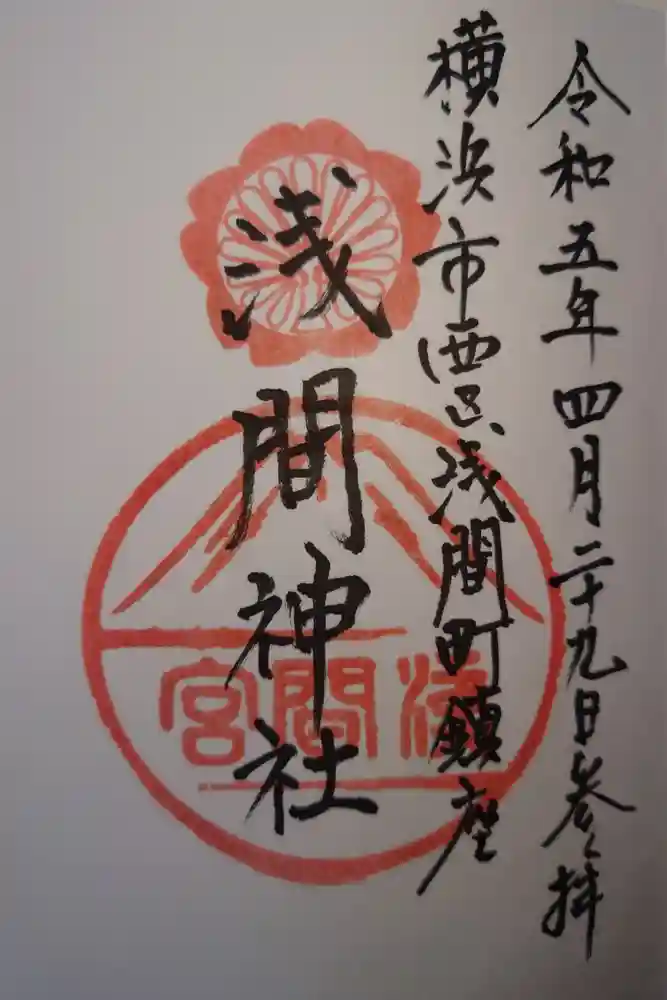 令和五年四月二十九日参拝
横浜市西区浅間町鎮座
浅間神社
浅間宮